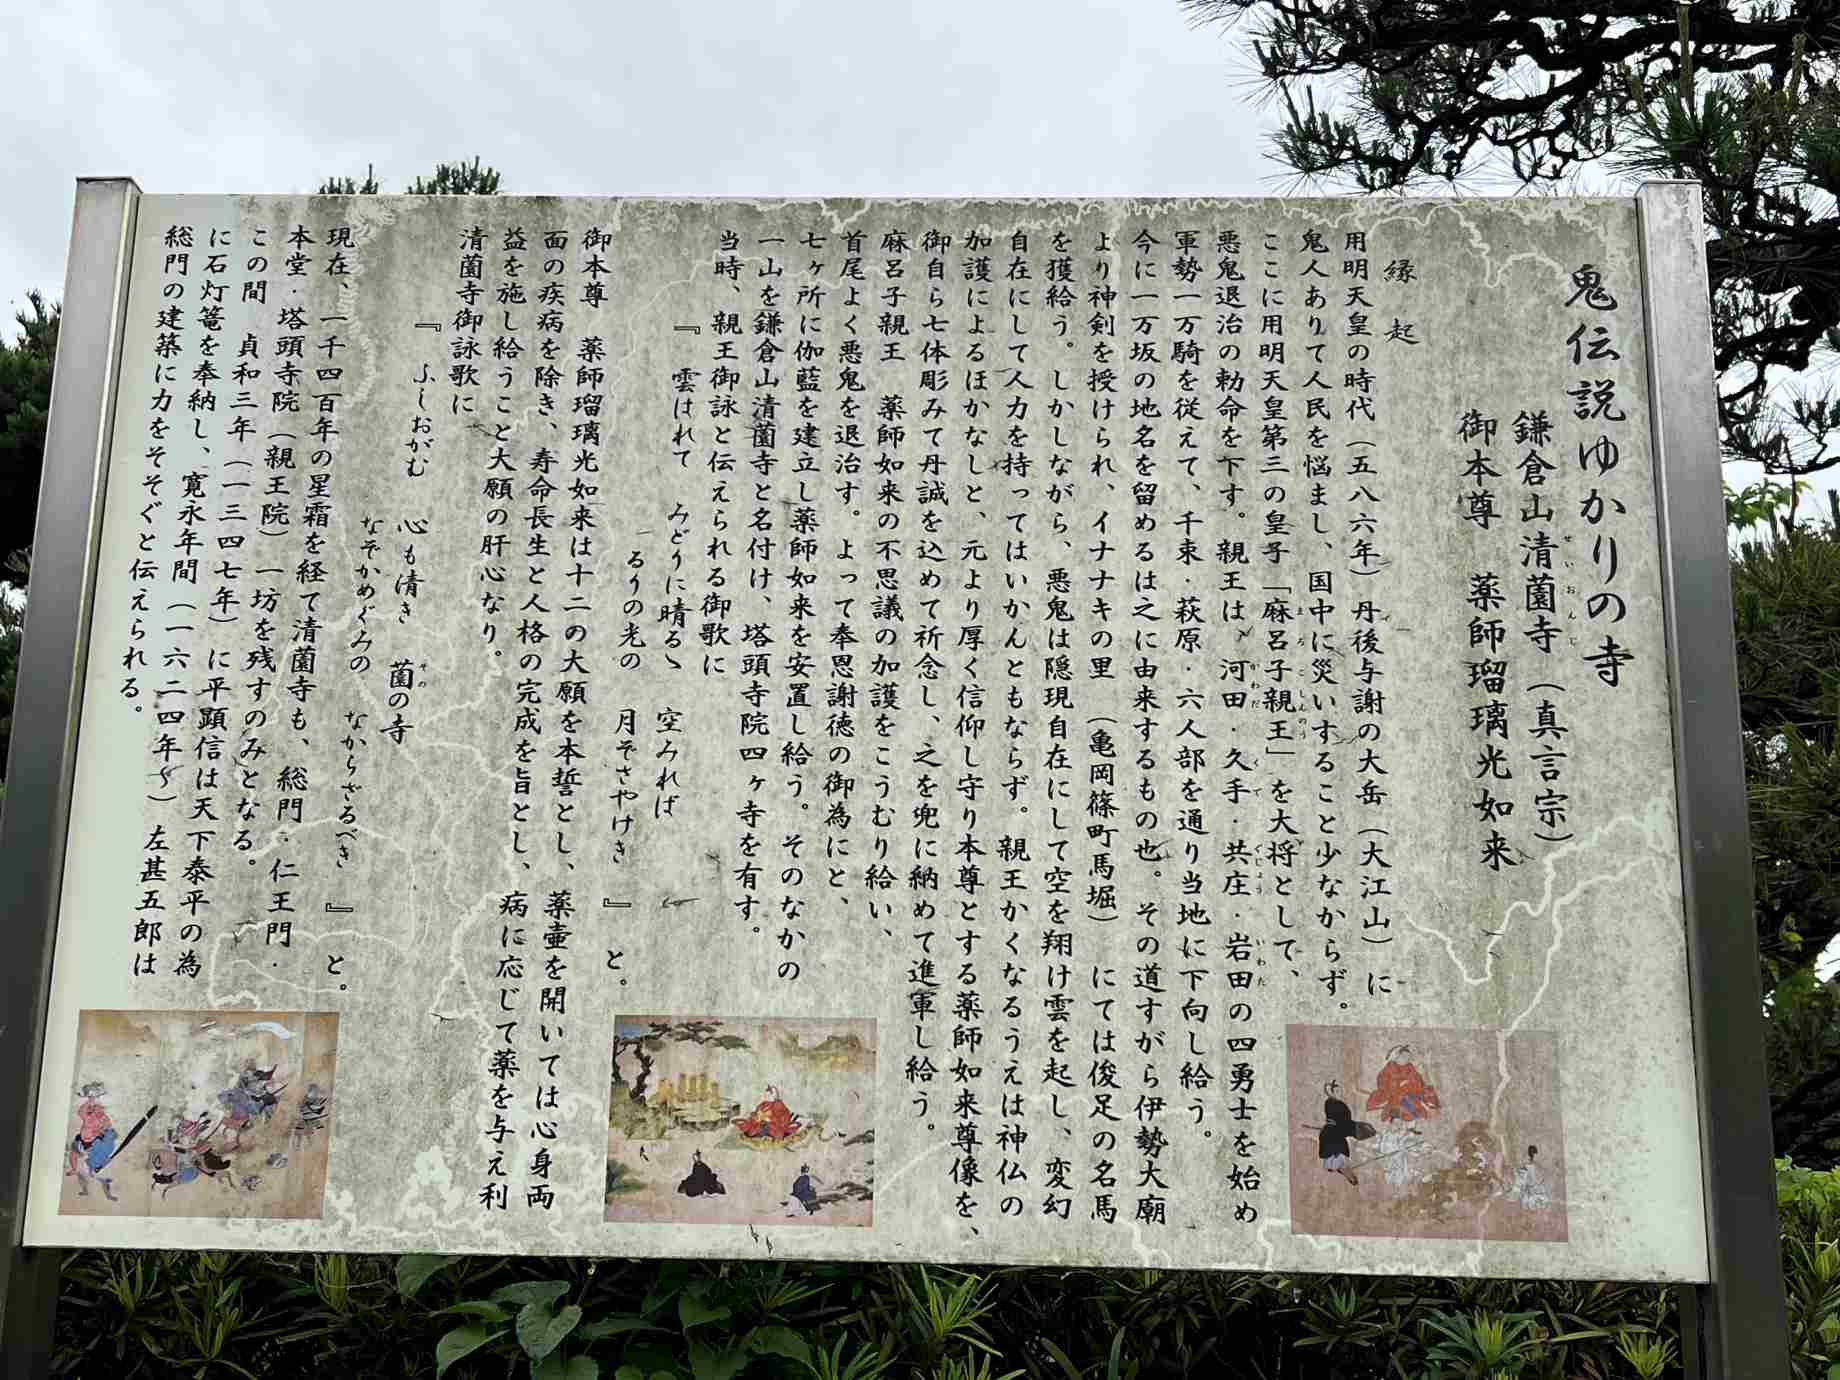 鬼伝説ゆかりの寺
鎌倉山清薗寺（真言宗）
せいおんじ
御本尊　薬師瑠璃光如来
縁起
用明天皇の時代（五八六年）丹後与謝の大岳（大江山）に
鬼人ありて人民を悩まし、国中に災いすること少なからず。
ここに用明天皇第三の皇子「麻呂子親王」を大将として、
まろこしんのう
悪鬼退治の勅命を下す。親王は、河田・久手・共庄・岩田の四勇士を始め
かわだ　くで　ぐじょう　いわた
軍勢一万騎を従えて、千束・萩原・六人部を通り当地に下向し給う。
今に一万坂の地名を留めるは之に由来するもの也。その道すがら伊勢大廟
より神剣を授けられ、イナナキの里　（亀岡篠町馬堀）にては俊足の名馬
を獲給う。しかしながら、悪鬼は隠現自在にして空を翔け雲を起し、変幻
自在にして人力を持ってはいかんともならず。親王かくなるうえは神仏の
加護によるほかなしと、元より厚く信仰し守り本尊とする薬師如来尊像を、
御自ら七体彫みて丹誠を込めて祈念し、之を兜に納めて進軍し給う。
麻呂子親王　薬師如来の不思議の加護をこうむり給い、
首尾よく悪鬼を退治す。よって奉恩謝徳の御為にと、
七ヶ所に伽藍を建立し薬師如来を安置し給う。そのなかの
一山を鎌倉山清薗寺と名付け、塔頭寺院四ヶ寺を有す。
当時、親王御詠と伝えられる御歌に
『　雲はれて　みどりに晴るゝ　空みれば
るりの光の　月ぞさやけき　』　と。
御本尊　薬師瑠璃光如来は十二の大願を本誓とし、薬壷を開いては心身両
面の疾病を除き、寿命長生と人格の完成を旨とし、病に応じて薬を与え利
益を施し給うこと大願の肝心なり。
清薗寺御詠歌に
『　ふしおがむ　心も清き　薗の寺
その
なぞかめぐみの　なからざるべき　』　と。
現在、一千四百年の星霜を経て清薗寺も、総門・仁王門・
本堂・塔頭寺院（親王院）一坊を残すのみとなる。
この間　貞和三年（一三四七年）に平顕信は天下泰平の為
に石灯篭を奉納し、寛永年間（一六二四年〜）左甚五郎は
総門の建築に力をそそぐと伝えられる。